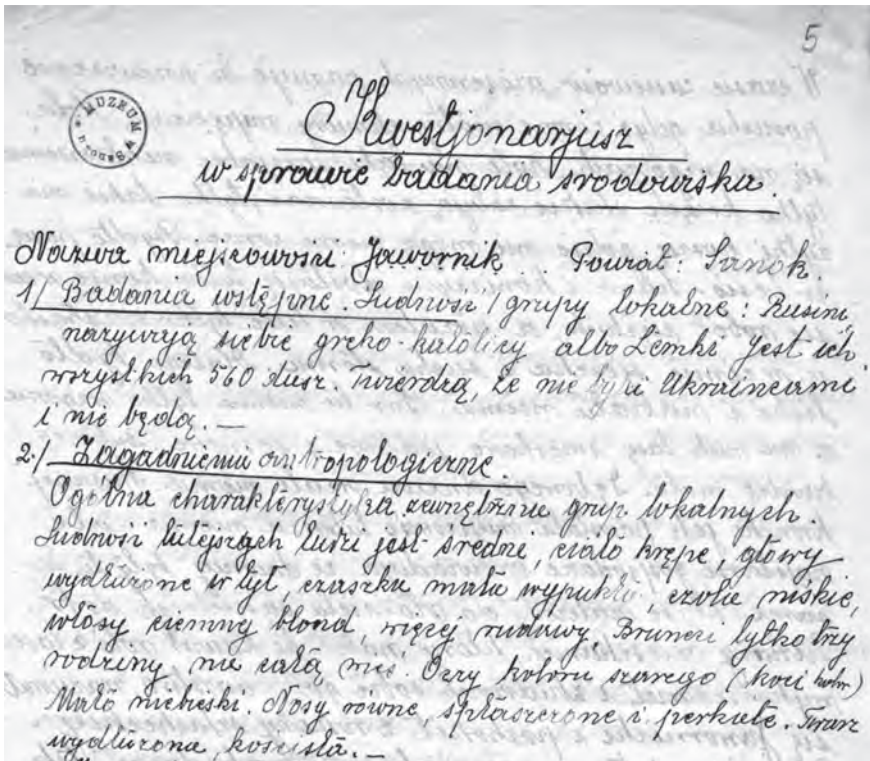 5
MUZEUM W
Sanoku
Kwestjonarjusz
w sprawie badania środowiska.
Nazwa miejscowości Jawornik.. Powiat: Sanok.
1/ Badania wstępne. Ludność / grupy lokalne: Rusini,
nazywają siebie greko-katolicy albo Łemki Jest ich
wszystkich 560 dusz. Twierdzą, że nie byli Ukraincami
i nie będą. —
2./ Zagadnienia antropologiczne.
Ogólna charakterystyka zewnętrzna grup lokalnych.
Ludność tutejszych ludzi jest średni, ciało krępe, głowy
wydłużone w tył, czaszka mała wypukła, czoła niskie,
włosy ciemny blond, więcej rudawy, Bruneci tylko trzy
rodziny na całą wieś. Oczy koloru szarego (koci kolor)
Mało niebieski. Nosy równe, spłaszczone i perkate. Twarz
wydłużona, koścista. —